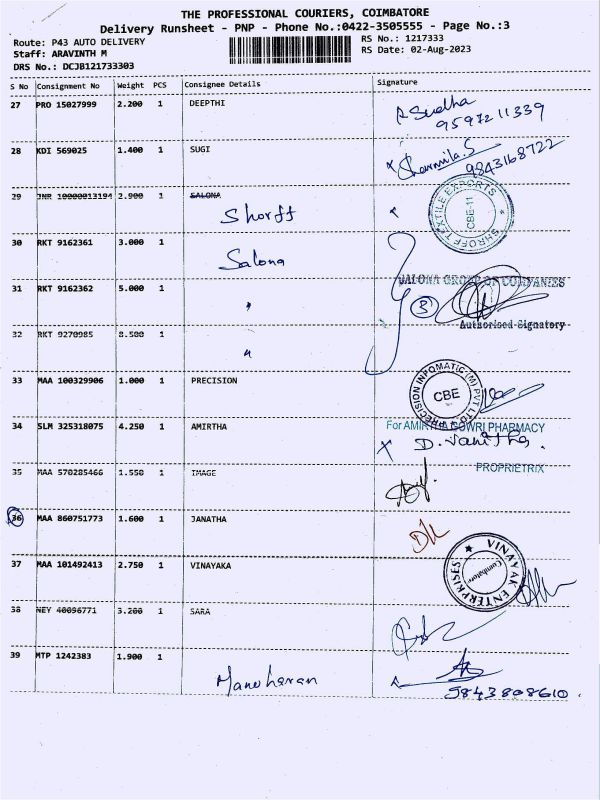 THE PROFESSIONAL COURIERS, COIMBATORE
Delivery Runsheet - PNP - Phone No.:0422-3505555 - Page No.:3
Route: P43 AUTO DELIVERY
Staff: ARAVINTH M
DRS No.: DCJB121733303
RS No.: 1217333
RS Date: 02-Aug-2023
S No Consignment No Weight PCS Consignee Details Signature
27 PRO 15027999 2.200 1 DEEPTHI
R Sudha
9597211339
28 KDI 569025 1.400 1 SUGI
Sharmila.S
9843168722
29 JNR 10000013194 2.900 1 SALONA
Shorff
SHROFF TEXTILE EXPORTS
CBE-11
30 RKT 9162361 3.000 1
Salona
31 RKT 9162362 5.000 1 "
SALONA GROUP OF COMPANIES
3
Authorised Signatory
32 RKT 9270985 8.500 1 "
33 MAA 100329906 1.000 1 PRECISION
PRECISION INFOMATIC (M) PVT LTD
CBE
34 SLM 325318075 4.250 1 AMIRTHA
For AMIRTHA GOWRI PHARMACY
D. Vanitha.
PROPRIETRIX
35 MAA 570285466 1.550 1 IMAGE
36 MAA 860751773 1.600 1 JANATHA
37 MAA 101492413 2.750 1 VINAYAKA
VINAYAK ENTERPRISES
Coimbatore
38 NEY 40096771 3.200 1 SARA
39 MTP 1242383 1.900 1
Manoharan
9843808610